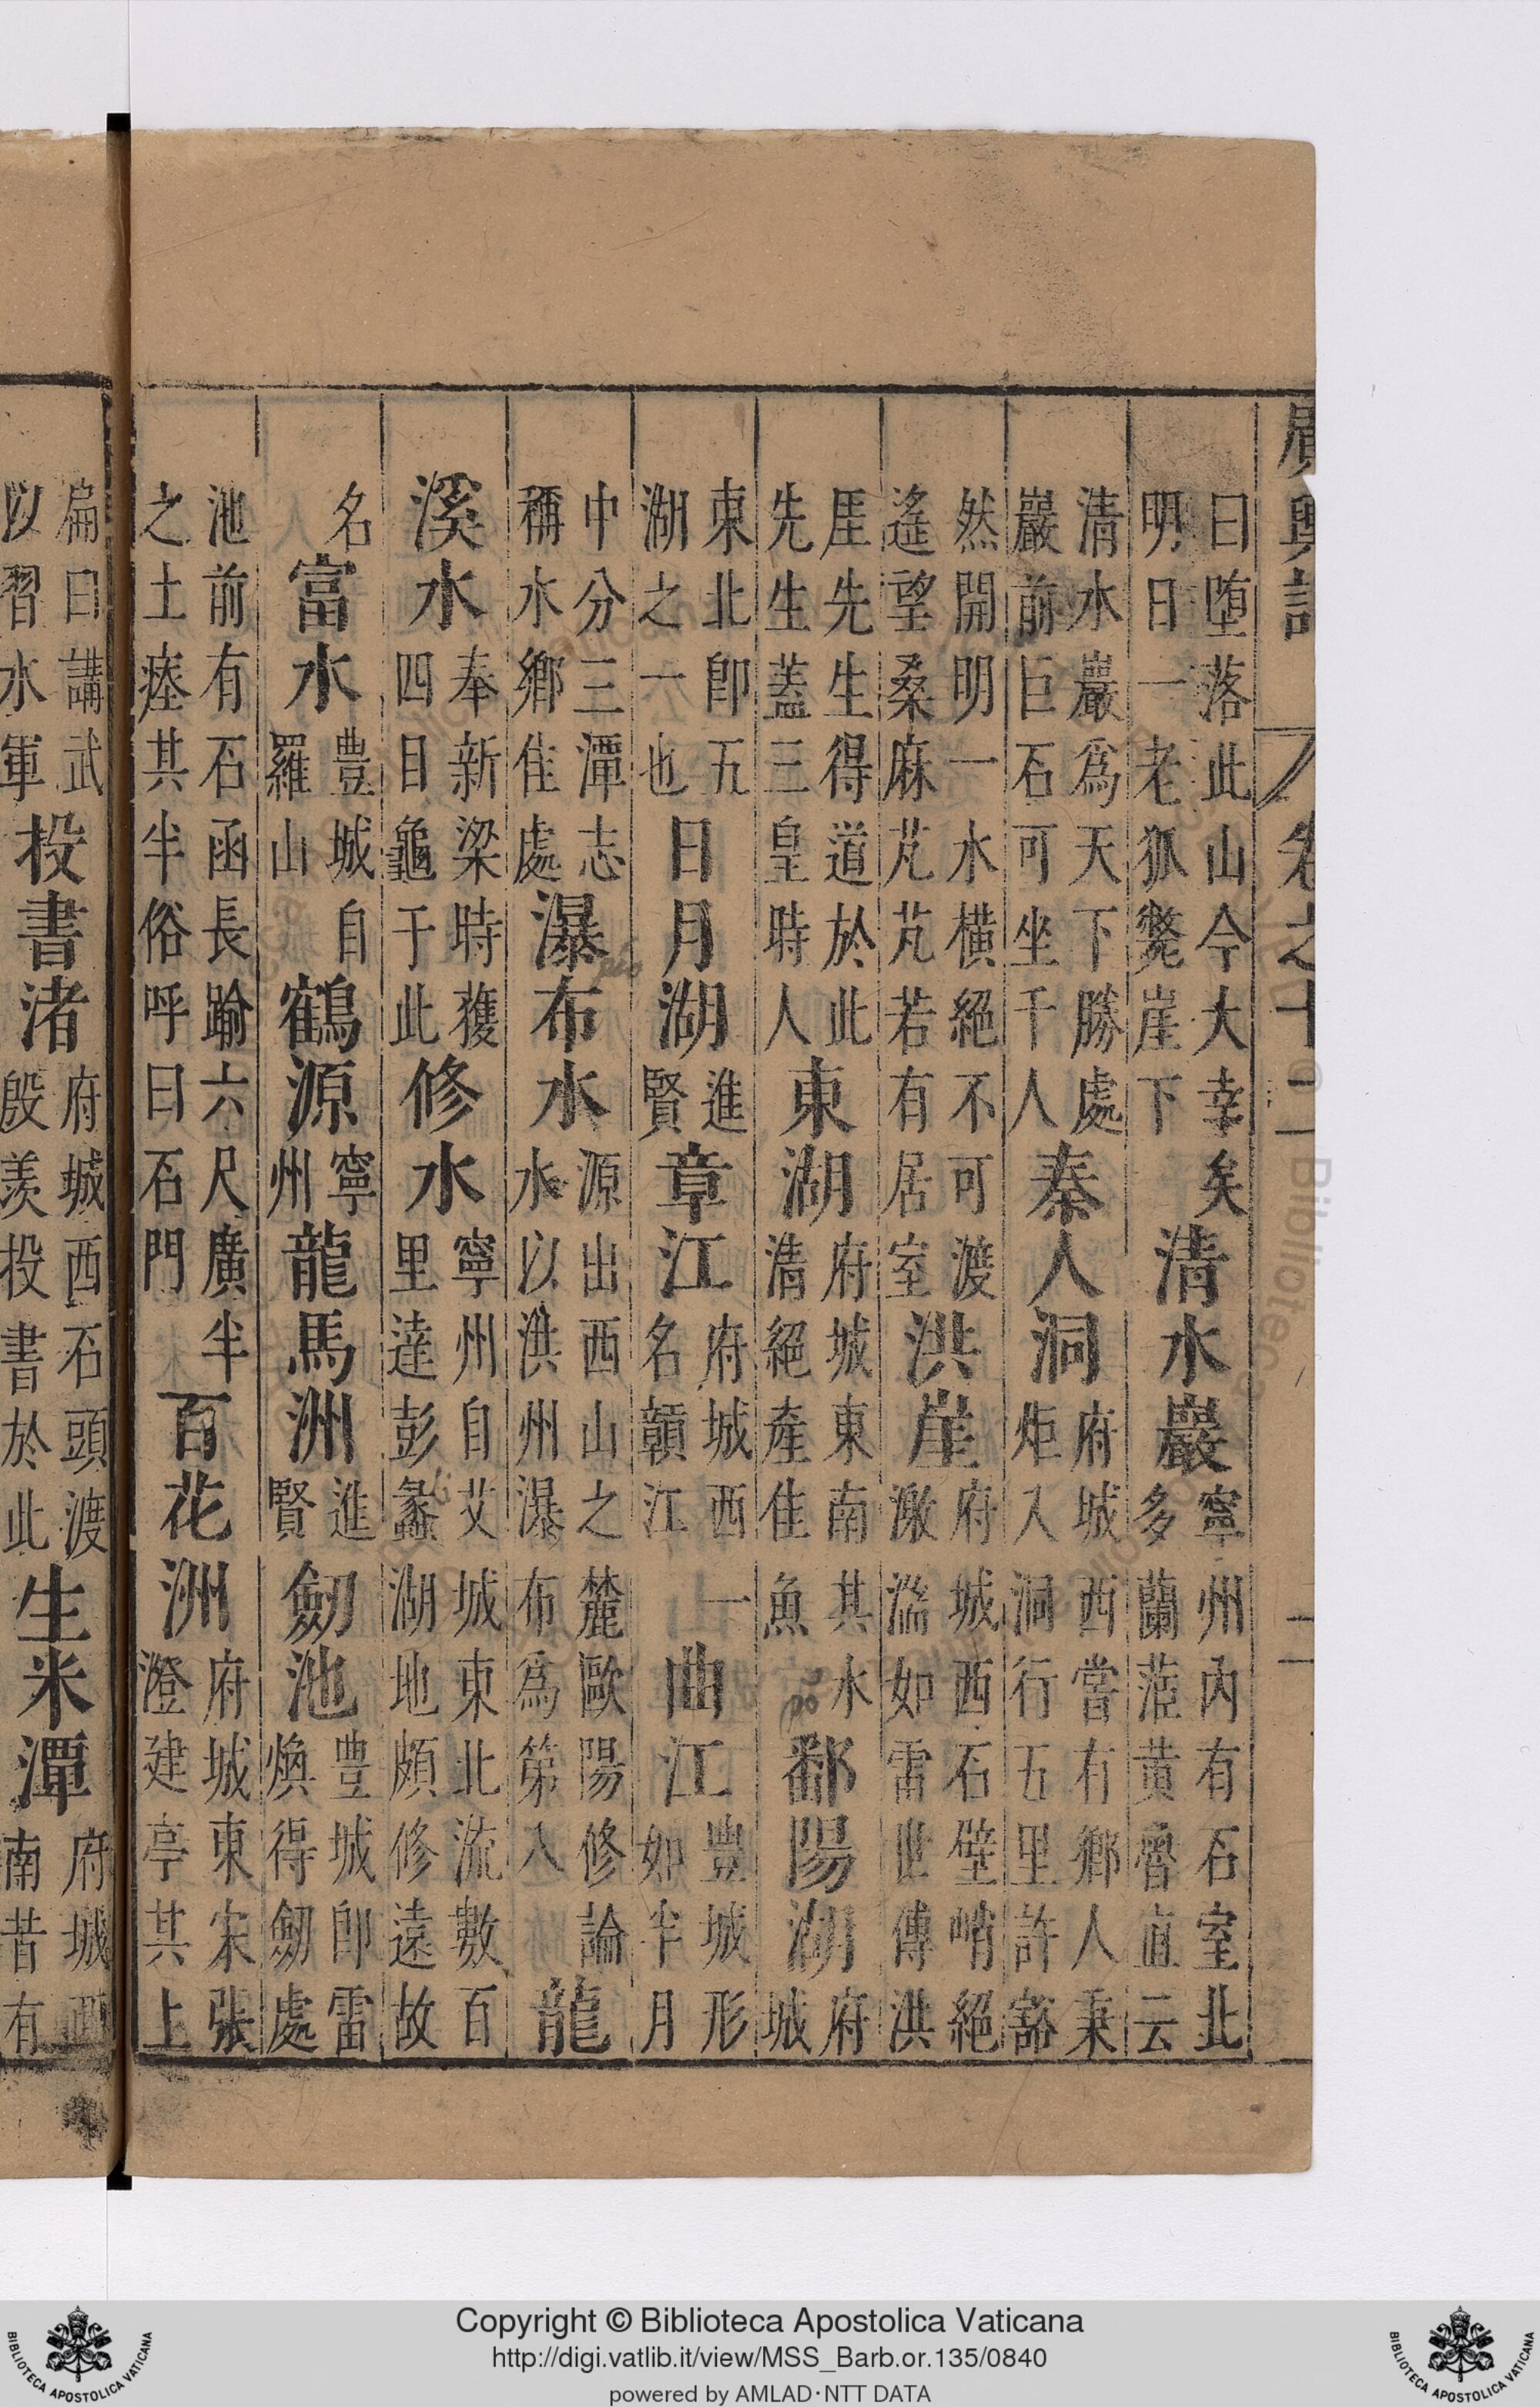 廣輿記 卷之十二 二
曰堕落此山今大幸矣明日一老狐斃崖下清水巖寧州内有石室北多蘭茝黃魯直云
清水巖爲天下勝處巖前巨石可坐千人秦人洞府城西嘗有鄉人秉炬入洞行五里許豁
然開明一水橫絕不可渡遙望桑麻芃芃若有居室洪崖府城西石壁峭絕激湍如雷世傳洪
厓先生得道於此先生蓋三皇時人東湖府城東南其水清絕產佳魚鄱陽湖府城
東北即五湖之一也日月湖進賢章江府城西一名贛江曲江豊城形如半月
中分三潭志稱水鄉佳處瀑布水源出西山之麓歐陽修論水以洪州瀑布爲第八龍
溪水奉新梁時獲四目龜于此修水寧州自艾城東北流數百里達彭蠡湖地頗修遠故
名富水豊城自羅山鶴源寧州龍馬洲進賢劒池豊城即雷煥得劒處
池前有石函長踰六尺廣半之土瘞其半俗呼曰石門百花洲府城東宋張澄建亭其上
扁曰講武以習水軍投書渚府城西石頭渡殷羨投書於此生米潭府城西南昔有
Copyright © Biblioteca Apostolica Vaticana
http://digi.vatlib.it/view/MSS_Barb.or.135/0840
powered by AMLAD·NTT DATA
BIBLIOTECA APOSTOLICA VATICANA
BIBLIOTECA APOSTOLICA VATICANA